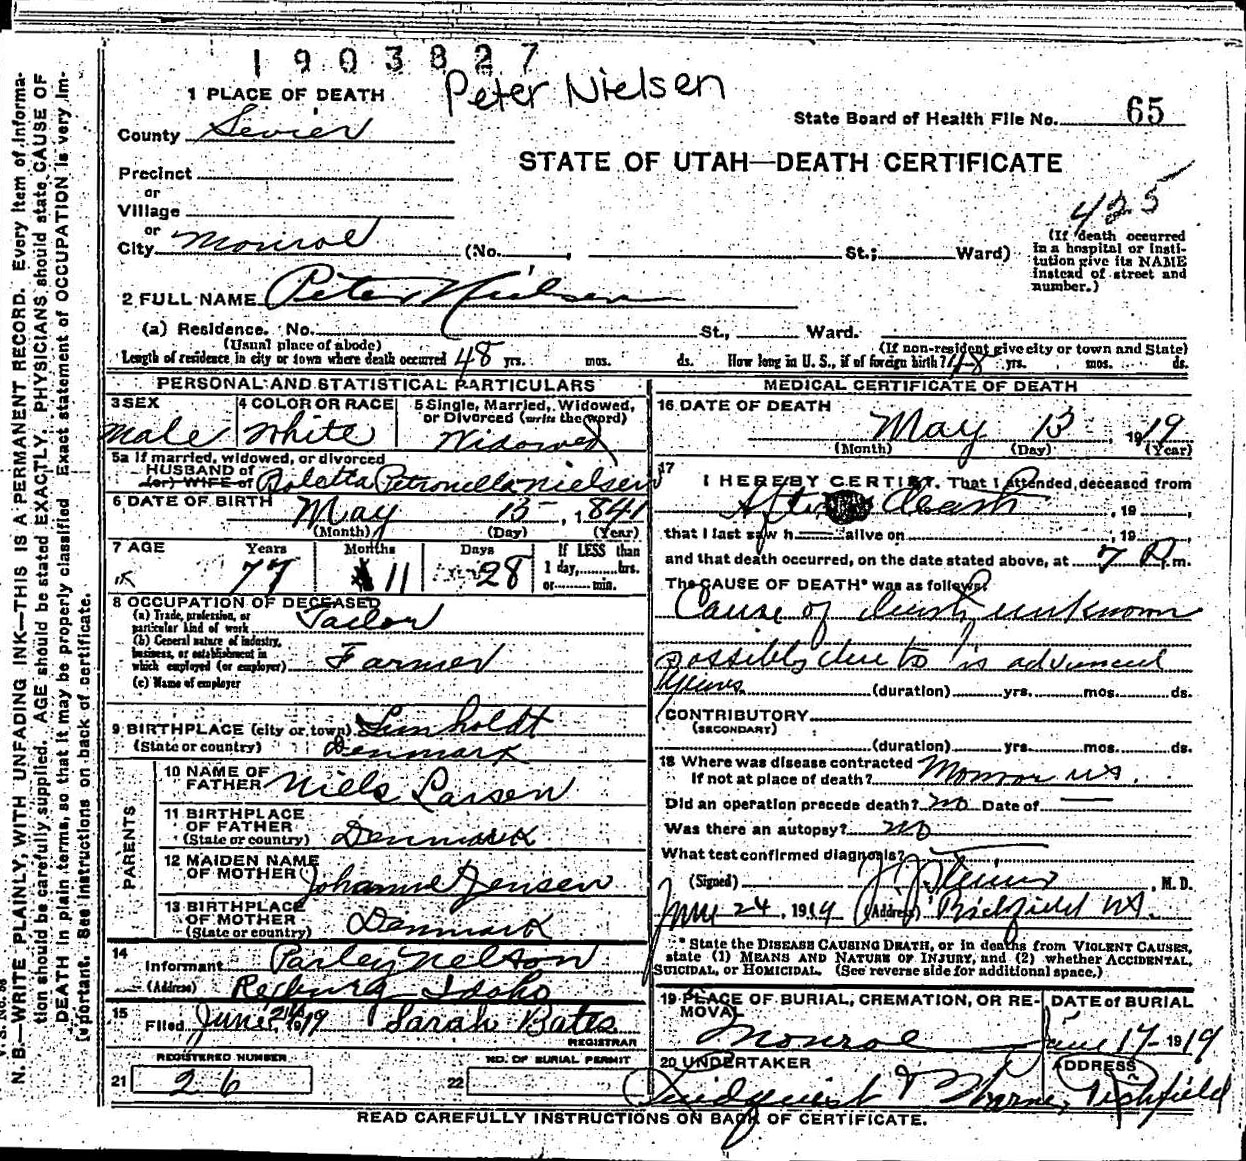 1903827
Peter Nielsen
1 PLACE OF DEATH
State Board of Health File No. 65
County Sevier
STATE OF UTAH—DEATH CERTIFICATE
Precinct
or
Village
or
425
City Monroe (No. , St.; Ward)
(If death occurred in a hospital or institution give its NAME instead of street and number.)
2 FULL NAME Peter Nielsen
(a) Residence. No. St., Ward.
(Usual place of abode) (If non-resident give city or town and State)
Length of residence in city or town where death occurred 48 yrs. mos. ds. How long in U. S., if of foreign birth? 48 yrs. mos. ds.
PERSONAL AND STATISTICAL PARTICULARS
3 SEX Male
4 COLOR OR RACE White
5 Single, Married, Widowed, or Divorced (write the word) Widowed
5a If married, widowed, or divorced
HUSBAND of
(or) WIFE of Petronella Nielsen
6 DATE OF BIRTH May 15, 1841
(Month) (Day) (Year)
7 AGE Years 77 Months 11 Days 28 If LESS than 1 day, hrs. or min.
8 OCCUPATION OF DECEASED
(a) Trade, profession, or particular kind of work Tailor
(b) General nature of industry, business, or establishment in which employed (or employer) Farmer
(c) Name of employer
9 BIRTHPLACE (city or town)
(State or country) Denmark
PARENTS
10 NAME OF FATHER Niels Larsen
11 BIRTHPLACE OF FATHER (State or country) Denmark
12 MAIDEN NAME OF MOTHER Johanne Jensen
13 BIRTHPLACE OF MOTHER (State or country) Denmark
14 Informant Parley Nelson
(Address) Rexburg Idaho
15 Filed June 24 1919 Sarah Bates
REGISTRAR
REGISTERED NUMBER
21 26
NO. OF BURIAL PERMIT
22
MEDICAL CERTIFICATE OF DEATH
16 DATE OF DEATH
May 13, 1919
(Month) (Day) (Year)
17 I HEREBY CERTIFY, That I attended deceased from
After death, 19
that I last saw h alive on , 19
and that death occurred, on the date stated above, at 7 P.m.
The CAUSE OF DEATH* was as follows:
Cause of death unknown
possibly due to his advanced
years (duration) yrs. mos. ds.
CONTRIBUTORY
(SECONDARY)
(duration) yrs. mos. ds.
18 Where was disease contracted
if not at place of death? Monroe Ut.
Did an operation precede death? no Date of —
Was there an autopsy? no
What test confirmed diagnosis?
(Signed) , M. D.
June 24, 1919 (Address) Richfield Ut.
*State the DISEASE CAUSING DEATH, or in deaths from VIOLENT CAUSES, state (1) MEANS AND NATURE OF INJURY, and (2) whether ACCIDENTAL, SUICIDAL, or HOMICIDAL. (See reverse side for additional space.)
19 PLACE OF BURIAL, CREMATION, OR REMOVAL
Monroe
DATE of BURIAL
June 17 1919
20 UNDERTAKER
ADDRESS
Richfield
READ CAREFULLY INSTRUCTIONS ON BACK OF CERTIFICATE.
N. B.—WRITE PLAINLY, WITH UNFADING INK—THIS IS A PERMANENT RECORD. Every item of information should be carefully supplied. AGE should be stated EXACTLY. PHYSICIANS should state CAUSE OF DEATH in plain terms, so that it may be properly classified. Exact statement of OCCUPATION is very important. See instructions on back of certificate.